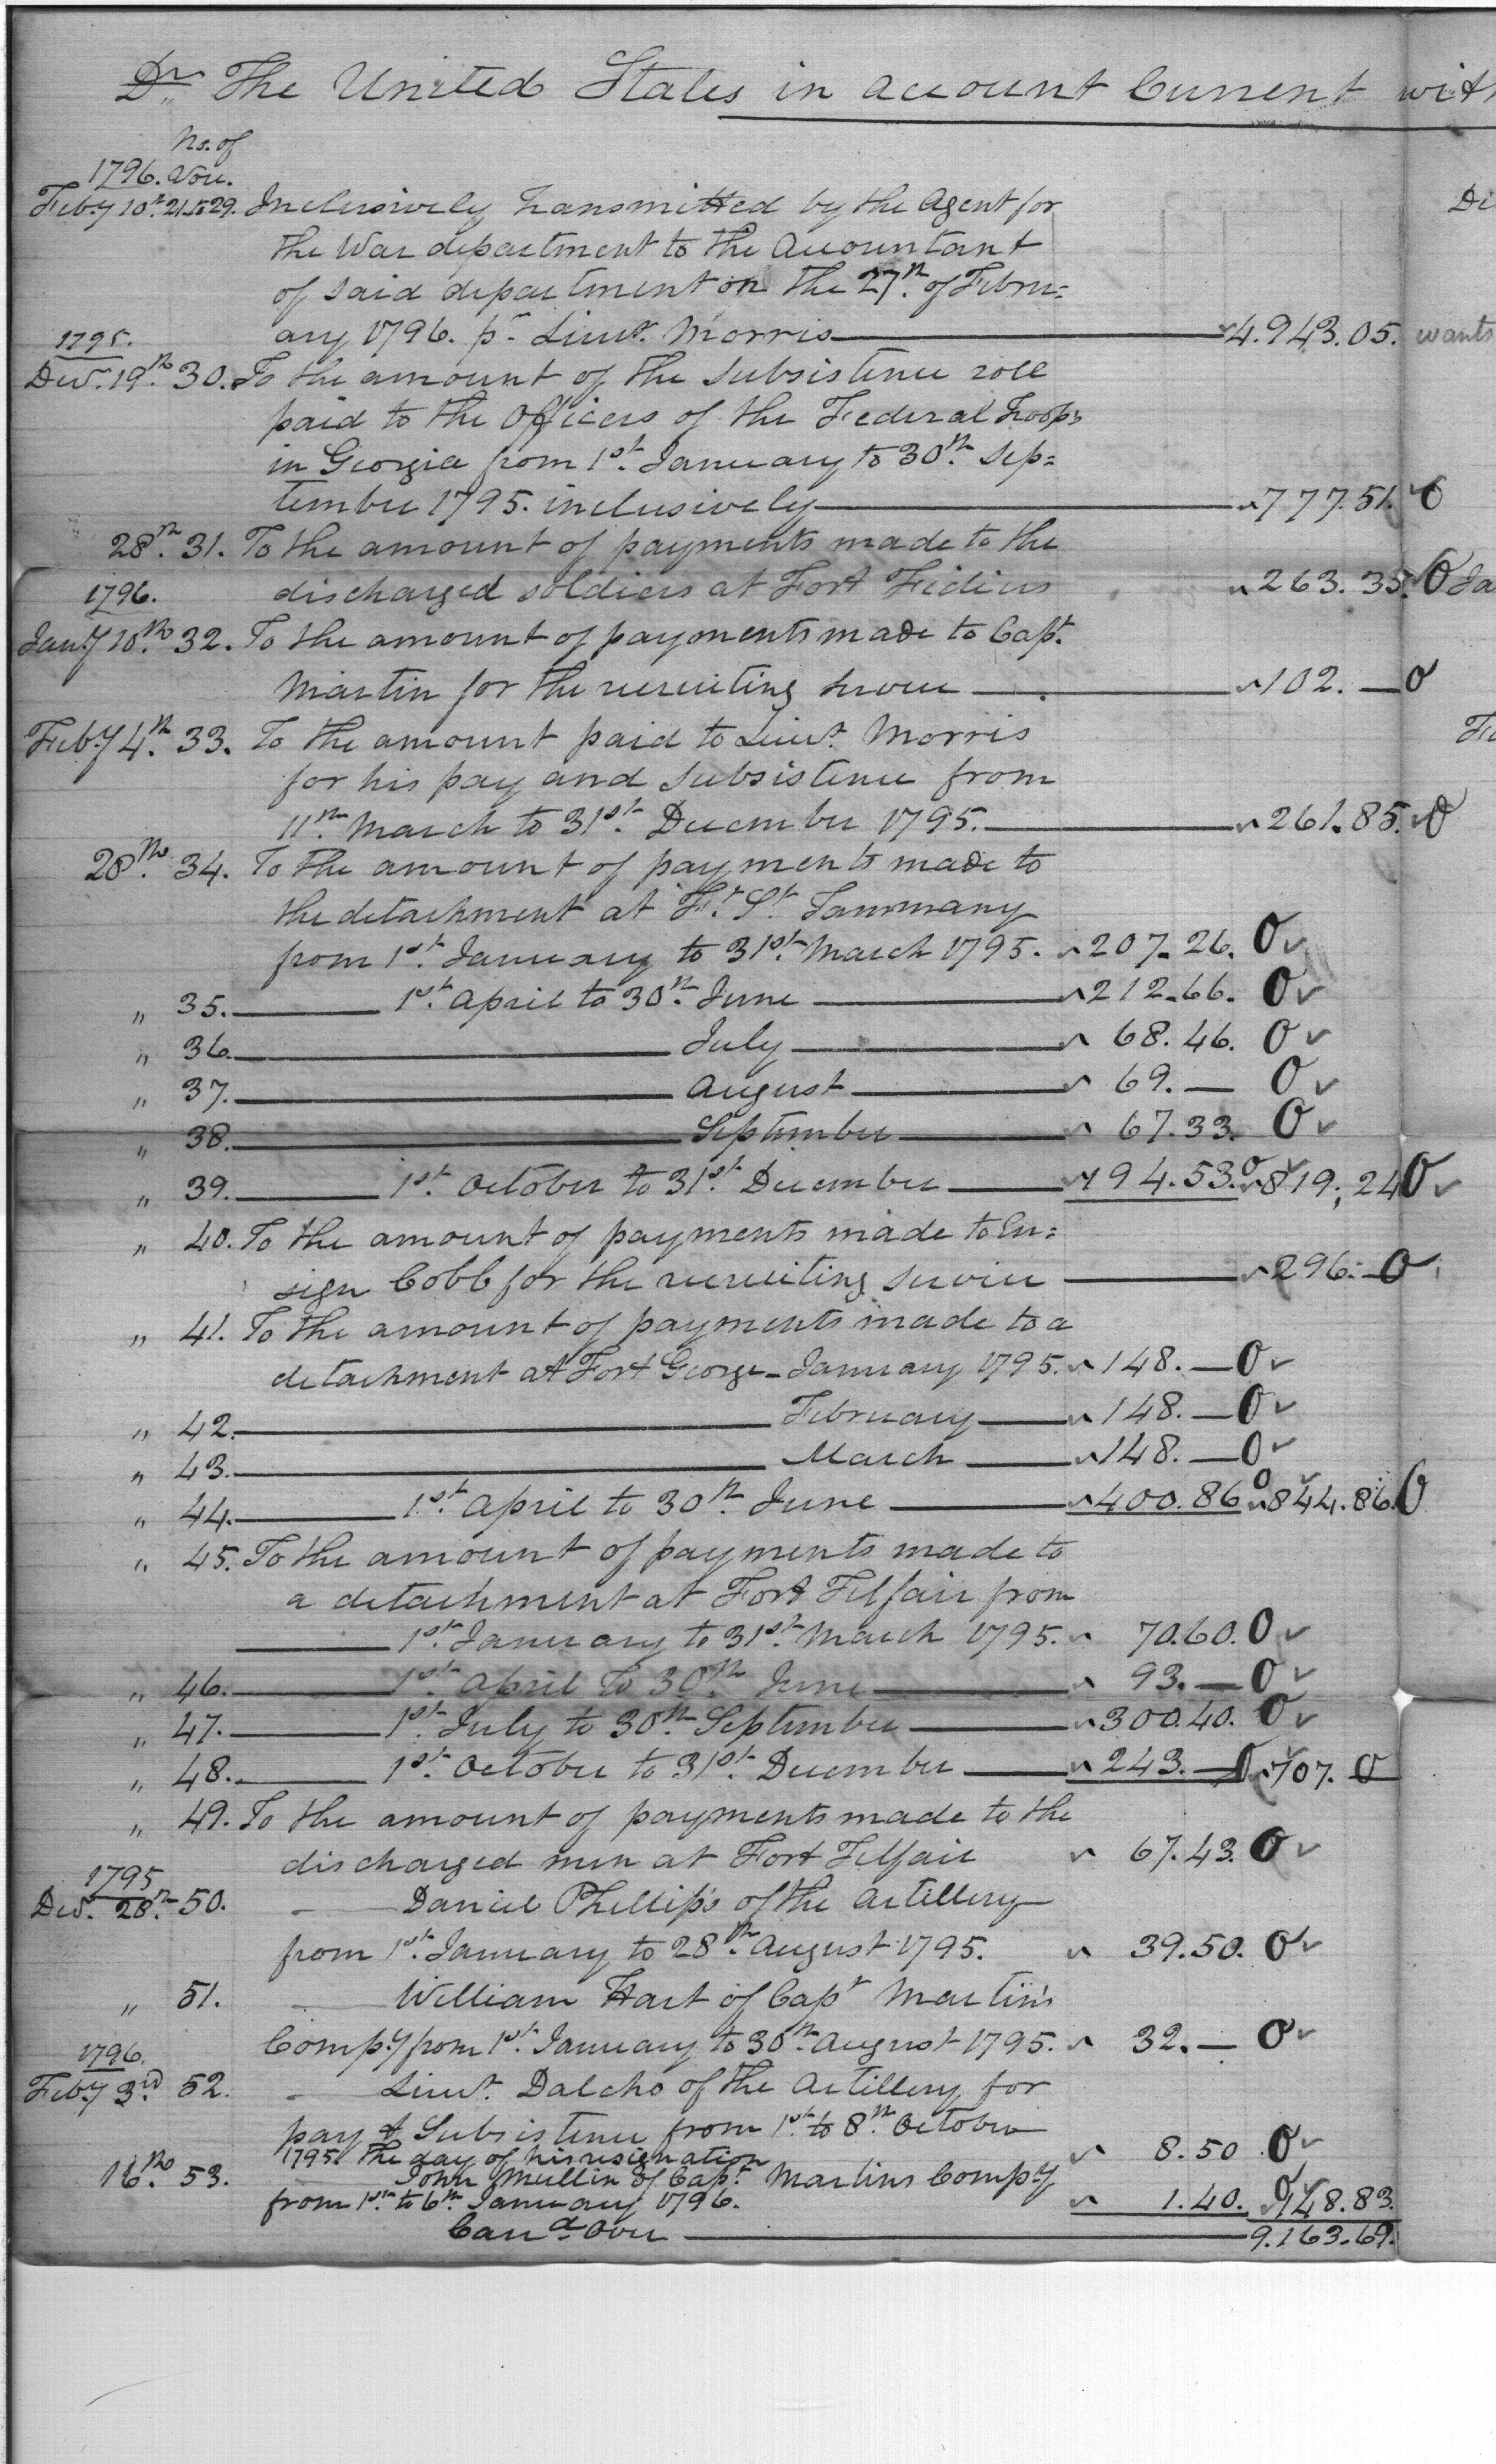 Dr. The United States in account Current with
No. of
1796. Vou.
Feby 10th. 21 to 29. Inclusively transmitted by the Agent for
the War department to the Accountant
of said department on the 27th. of Febru=
ary 1796. pr. Lieut. Morris 4.943.05. wants
1795.
Decr. 19th. 30. To the amount of the subsistence roll
paid to the Officers of the Federal Troops
in Georgia from 1st. January to 30th. Sep=
tember 1795. inclusively 777.51. O
28th. 31. To the amount of payments made to the
discharged soldiers at Fort Fidius 263.35. O
1796.
Jany 10th. 32. To the amount of payments made to Capt.
Martin for the recruiting service 102. — O
Feby 4th. 33. To the amount paid to Lieut. Morris
for his pay and subsistence from
11th. March to 31st. December 1795. 261.85. O
28th. 34. To the amount of payments made to
the detachment at Ft. St. Tammany
from 1st. January to 31st. March 1795. 207.26. O
" 35. 1st. April to 30th. June 212.66. O
" 36. July 68.46. O
" 37. August 69. — O
" 38. September 67.33. O
" 39. 1st. October to 31st. December 194.53. O 819.24 O
" 40. To the amount of payments made to En=
sign Cobb for the recruiting service 296. — O
" 41. To the amount of payments made to a
detachment at Fort George - January 1795. 148. — O
" 42. February 148. — O
" 43. March 148. — O
" 44. 1st. April to 30th. June 400.86 O 844.86. O
" 45. To the amount of payments made to
a detachment at Fort Telfair from
1st. January to 31st. March 1795. 70.60. O
" 46. 1st. April to 30th. June 93. — O
" 47. 1st. July to 30th. September 300.40. O
" 48. 1st. October to 31st. December 243. — O 707. O
" 49. To the amount of payments made to the
discharged men at Fort Telfair 67.43. O
1795
Decr. 28th. 50. — Daniel Phellips of the Artillery
from 1st. January to 28th. August 1795. 39.50. O
" 51. — William Hart of Capt Martin's
Compy from 1st. January to 30th. August 1795. 32. — O
1796.
Feby 3rd 52. — Lieut. Dalcho of the Artillery for
pay & Subsistence from 1st. to 8th. October
1795. the day of his resignation 8.50 O
16th. 53. John Mullin of Capt. Martins Compy
from 1st. to 6th. January 1796. 1.40. O 148.83.
Card. Over 9.163.69.